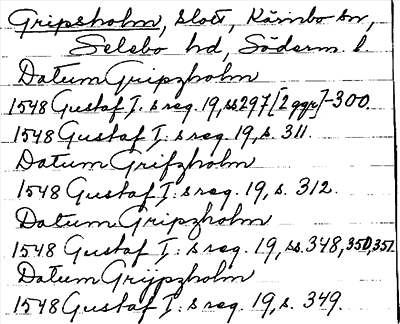 Gripsholm, slott, Kärnbo sn,
Selebo hd, Söderm. l.
Datum Gripzholm
1548 Gustaf I:s reg. 19, ss 297 [2 ggr]-300.
1548 Gustaf I:s reg. 19, s. 311.
Datum Grifzholm
1548 Gustaf I:s reg. 19, s. 312.
Datum Gripzholm
1548 Gustaf I:s reg. 19, ss. 348, 350, 351
Datum Grijpzholm
1548 Gustaf I:s reg. 19, s. 349.